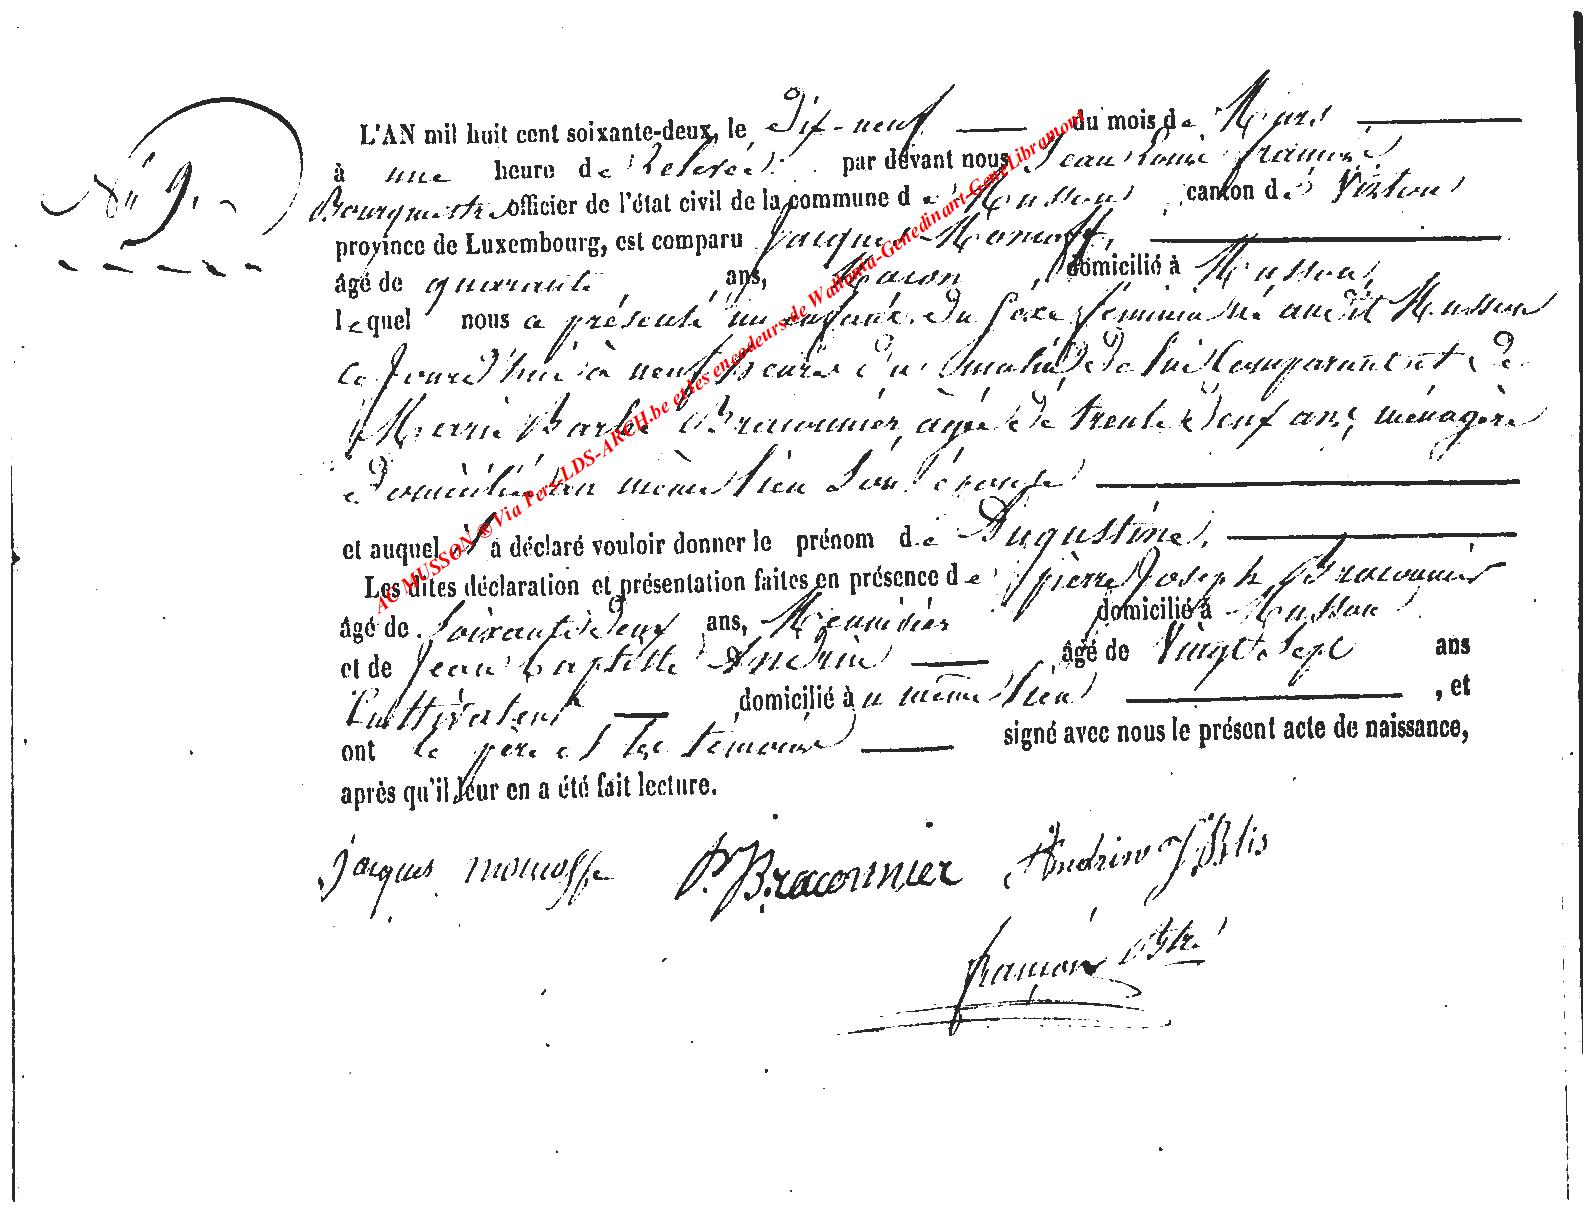 N° 9.
L'AN mil huit cent soixante-deux, le Dix-neuf du mois de Mars
à une heure de Relevée par devant nous Jean Louis François
Bourgmestre officier de l'état civil de la commune de Musson, canton de Virton
province de Luxembourg, est comparu Jacques Momoff,
âgé de quarante ans, Macon domicilié à Musson,
lequel nous a présenté un enfant du Sexe féminin né audit Musson
ce Jourd'hui à neuf heures du matin, de lui Comparant et de
Marie Barbe Braconnier, âgée de trente deux ans, ménagère
domiciliée au même lieu Son épouse
et auquel il a déclaré vouloir donner le prénom de Augustine.
Les dites déclaration et présentation faites en présence de Pierre Joseph Braconnier
âgé de soixante deux ans, Menuisier domicilié à Musson
et de Jean Baptiste Andrin âgé de Vingt Sept ans
Cultivateur domicilié au même lieu, et
ont le père et les témoins signé avec nous le présent acte de naissance,
après qu'il leur en a été fait lecture.
Jacques momoff P. J. Braconnier Andrin J Btis
françois Bstre
AC MUSSON ® Via Pers-LDS-ARCH.be et les encodeurs de Wallonia-Genedinant-GeneLibramont